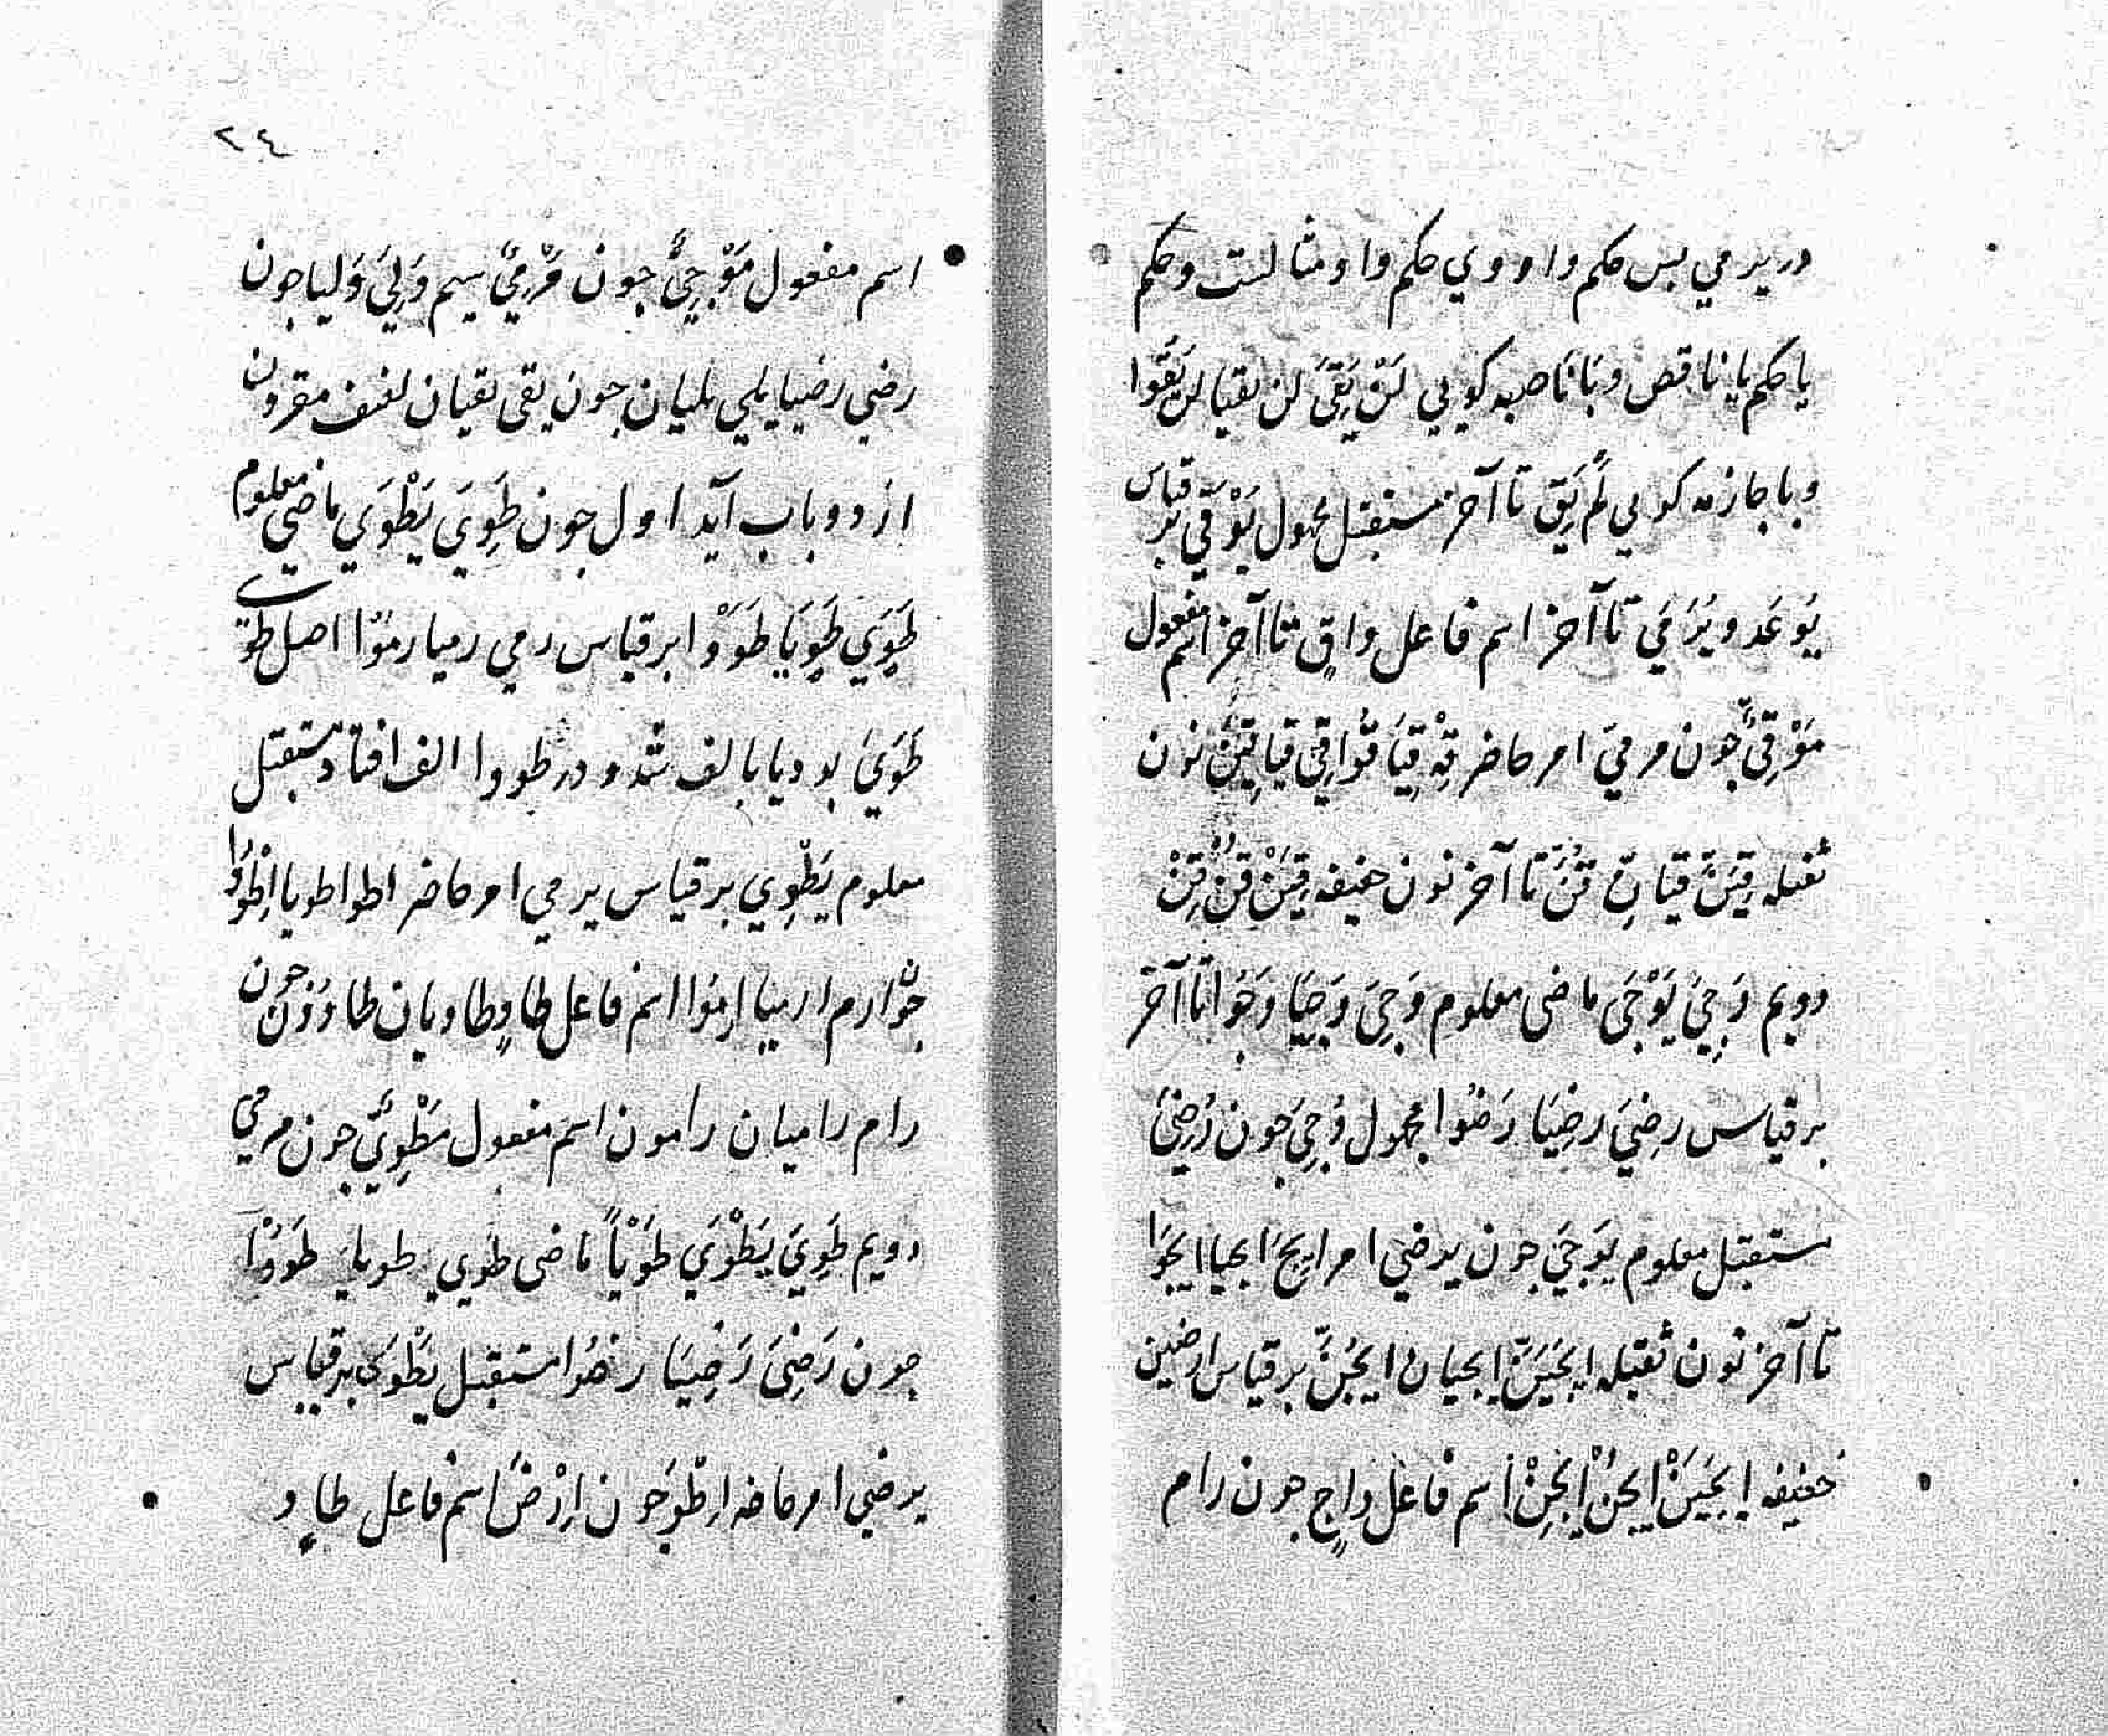 در یرمي بس حکم واو وي حکم واو مثالست وحکم
یا حکم یا ناقص وبا ناصبه کویی لَنْ یَقِيَ لن یقیا لن یَقُوا
وبا جازمه کویي لَمْ یَقِ تا آخر مستقبل مجهول یُوْقَي بر قیاس
یُوعَد و یُرْمَي تا آخر اسم فاعل واقٍ تا آخر اسم مفعول
مَوْقِيٌّ جون مرمي امر حاضر قِهْ قِیَا قُوا قِي قِیا قِیْنَ نون
ثقیله قِیَنَّ قیانِّ قُنَّ تا آخر نون خفیفه قِیَنْ قُنْ قِنْ
دویم وَجِيَ یَوْجَی ماضی معلوم وَجِيَ وَجِیَا وَجُوا تا آخر
بر قیاس رضِيَ رضِیَا رَضُوا مجهول وُجِيَ جون رُضِيَ
مستقبل معلوم یوجَي جون یرضي امر اِیجَ ایجیا ایجَوا
تا آخر نون ثقیله ایجَیَنَّ ایجیانِّ ایجَوُنَّ بر قیاس ارضین
خفیفه اِیجَیَنْ ایجَوُنْ ایجَیِنْ اسم فاعل واجٍ جون رام
٢٤
اسم مفعول مَوْجِيٌّ جون مَرْمِيٌّ سیم وَلِيَ وَلِیا جون
رضي رضیا یلي یلیان جون یقی یقیان لفیف مقرون
از دو باب آید اول جون طَوَيَ یَطْوِي ماضي معلوم
طَوَي طَوَیَا طَوَوْا بر قیاس رمي رمیا رموْا اصل طوي
طَوَيَ بود یا بالف شد و در طووا الف افتاد مستقبل
معلوم یَطْوِي بر قیاس یرمي امر حاضر اطو اطویا اِطْوُوا
جوْن ارم ارمیا اِرمُوا اسم فاعل طاوٍ طاویان طاوُوْن جون
رام رامیان رامون اسم مفعول مَطْوِيٌّ جون مرمي
دویم طَوِيَ یَطْوَي طَوْیًا ماضی طَوِي طویا طَوُوْا
جون رَضِيَ رَضِیَا رضُوا مستقبل یَطْوَی بر قیاس
یرضي امر حاضر اِطْوَ جون اِرْضَ اسم فاعل طاوٍ و